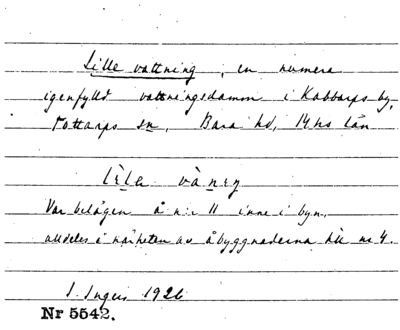 Lille vattning, en numera
igenfylld vattningsdamm i Kabbarps by,
Tottarps sn, Bara hd, M;hs län
lìla vàneŋ
Var belägen å nr 11 inne i byn.
alldeles i närheten av åbyggnaderna till nr 4.
I. Ingers 1926
Nr 5542.